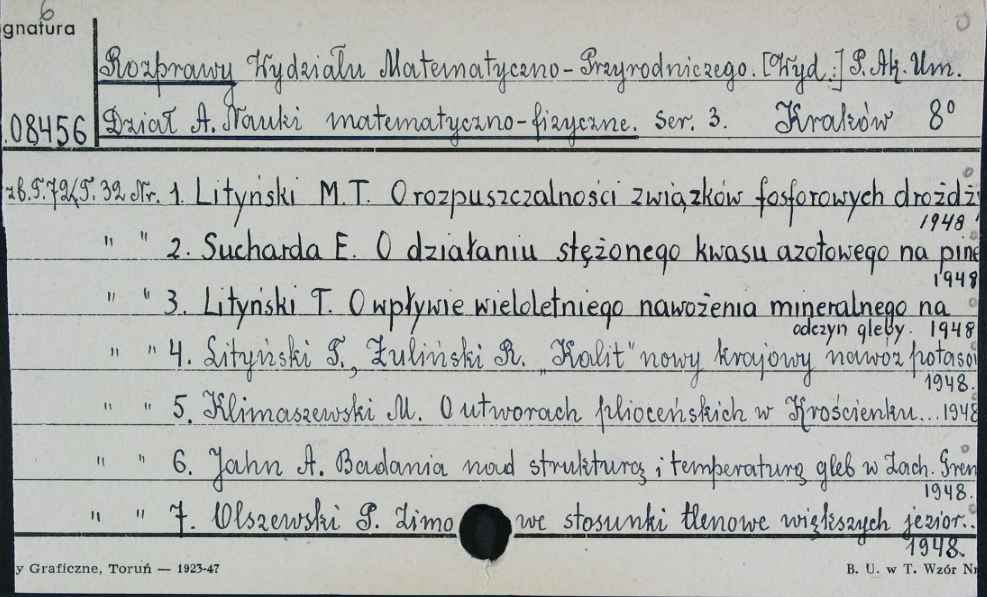 6
gnatura
Rozprawy Wydziału Matematyczno-Przyrodniczego. [Wyd.:] P. Ak. Um.
.08456 Dział A. Nauki matematyczno-fizyczne. ser. 3. Kraków 8°
zb. T. 72, T. 32 Nr. 1. Lityński M.T. O rozpuszczalności związków fosforowych drożdży
1948.
" " 2. Sucharda E. O działaniu stężonego kwasu azotowego na pine
1948
" " 3. Lityński T. O wpływie wieloletniego nawożenia mineralnego na
odczyn gleby. 1948
" " 4. Lityński T., Zuliński R. „Kalit" nowy krajowy nawóz potasow
1948.
" " 5. Klimaszewski M. O utworach plioceńskich w Krościenku...1948
" " 6. Jahn A. Badania nad strukturą i temperaturą gleb w Zach. Gren
1948.
" " 7. Olszewski P. Zimowe stosunki tlenowe większych jezior..
1948.
y Graficzne, Toruń — 1923-47 B. U. w T. Wzór Nr